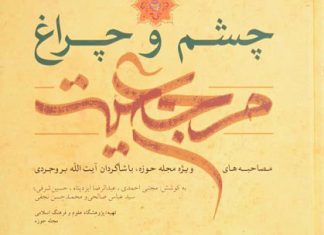 چشم و چراغ
مرجعیت
مصاحبه های ویژه مجله حوزه، با شاگردان آیت الله بروجردی
به کوشش: مجتبی احمدی، عبدالرضا ایزدپناه، حسین شرفی،
سید عباس صالحی و محمدحسن نجفی
تهیه: پژوهشگاه علوم و فرهنگ اسلامی
مجله حوزه